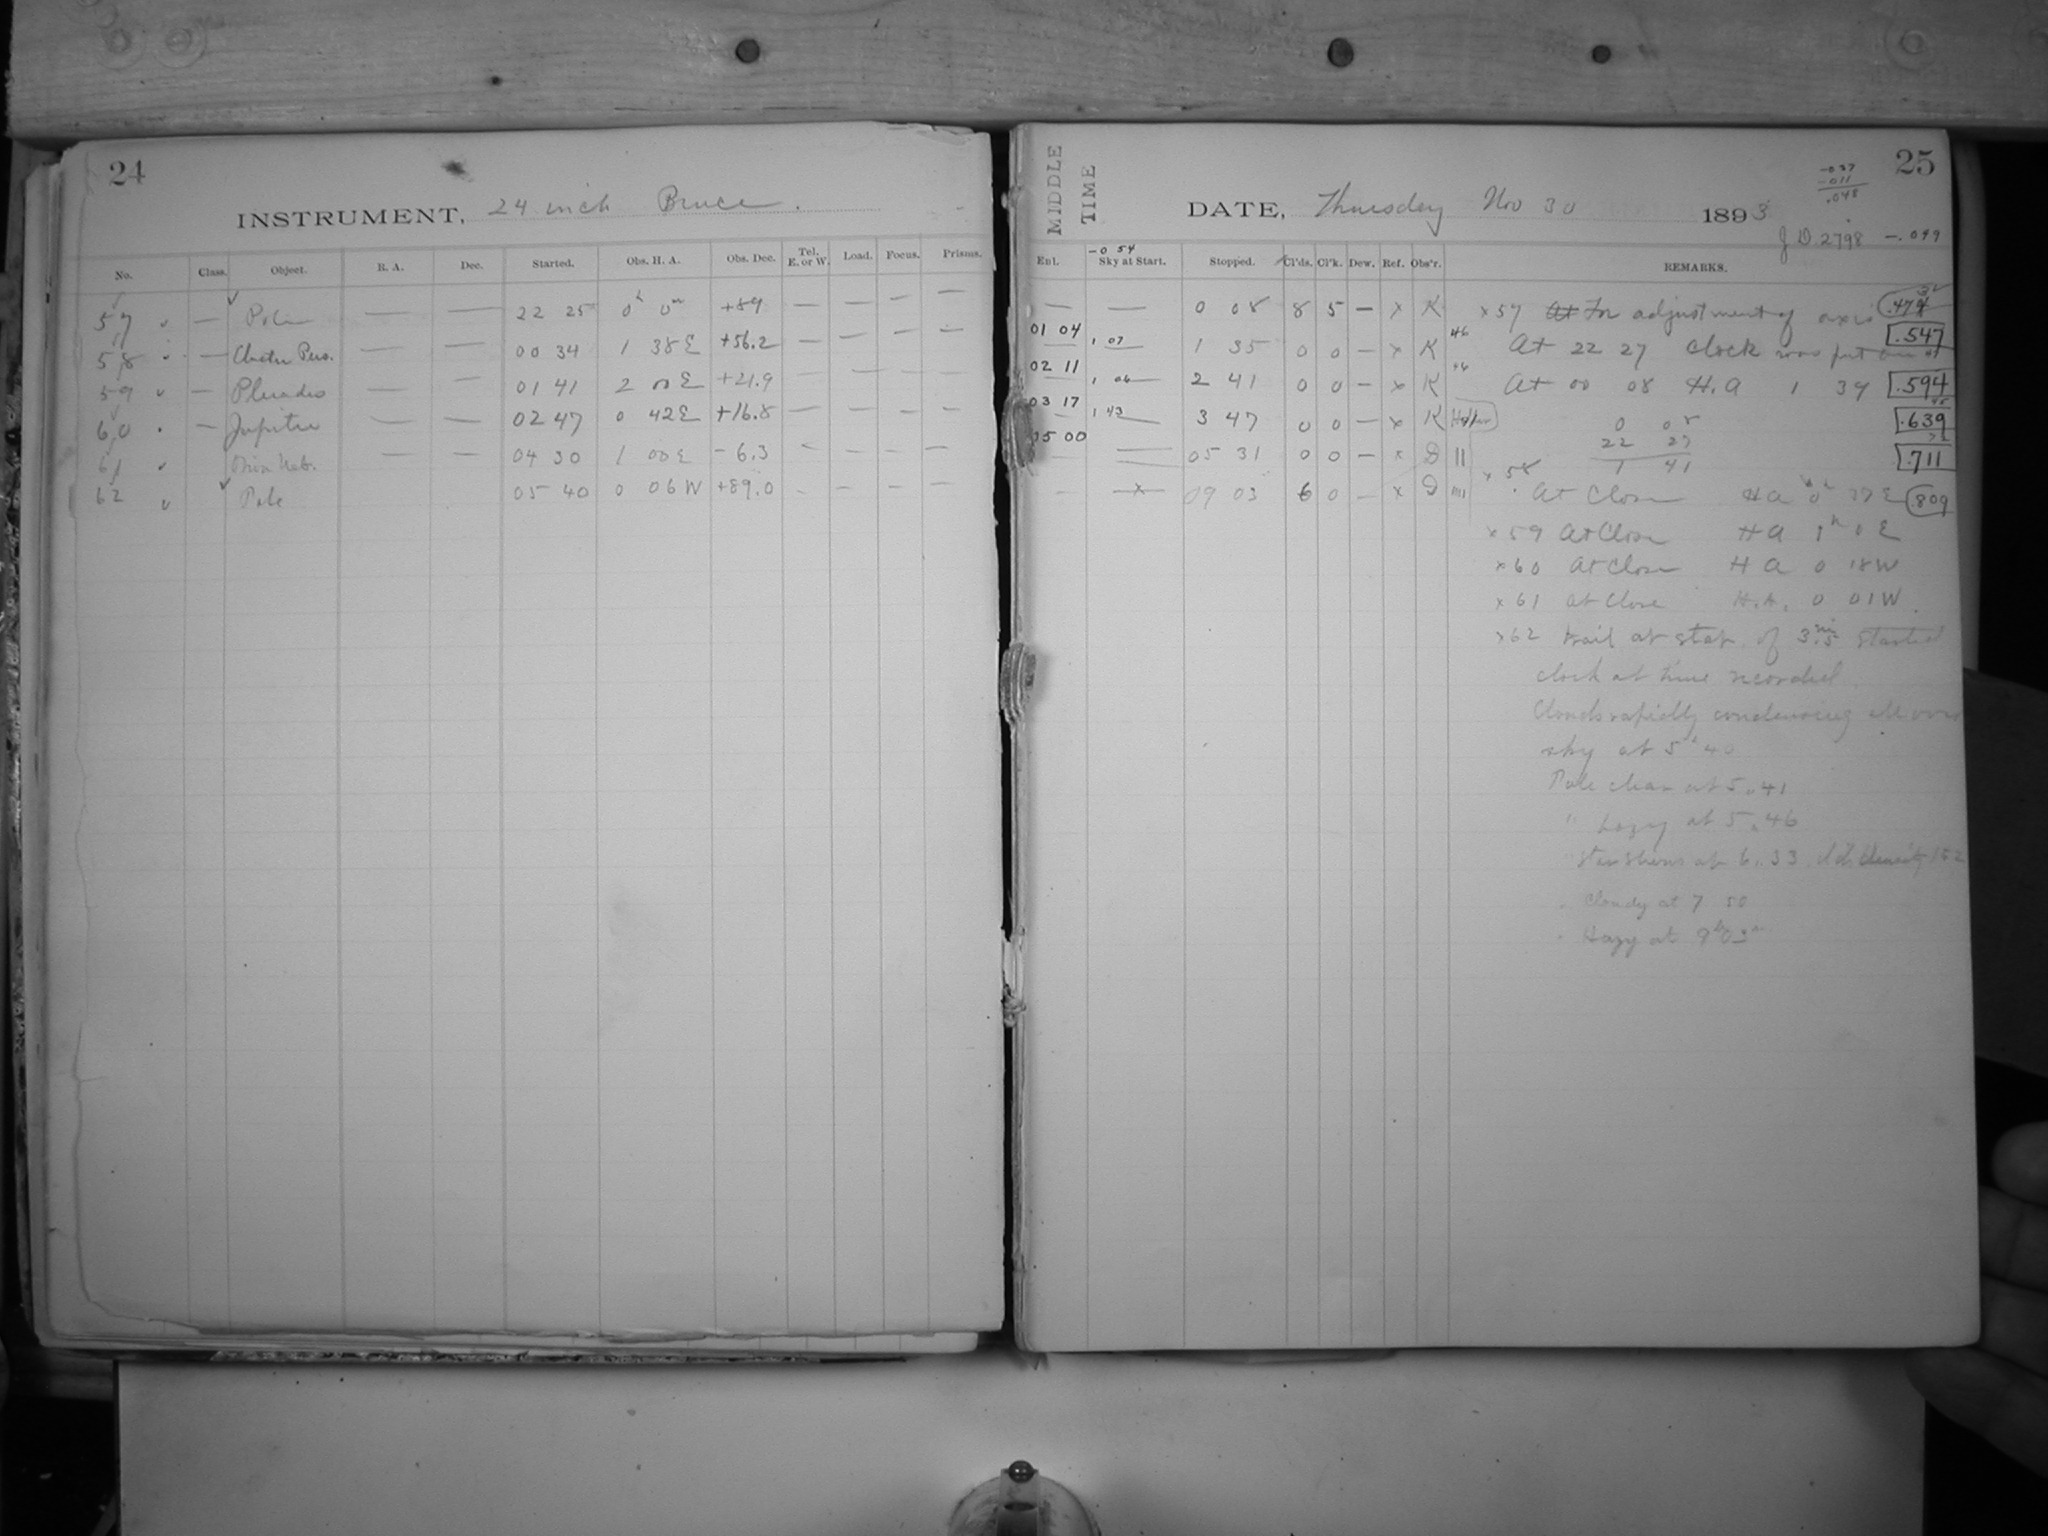 24
INSTRUMENT, 24 inch Bruce.
No. Class. Object. R. A. Dec. Started. Obs. H. A. Obs. Dec. Tel. E. or W. Load. Focus. Prisms.
57 — Pole — — 22 25 0h 0m +89 — — — —
58 — Cluster Pers. — — 00 34 1 38 E +56.2 — — — —
59 — Pleiades — — 01 41 2 00 E +21.9 — — — —
60 — Jupiter — — 02 47 0 42 E +16.8 — — — —
61 Orion Neb. — — 04 30 1 00 E -6.3 — — — —
62 Pole 05 40 0 06 W +89.0 — — — —
25
MIDDLE TIME
DATE, Thursday Nov 30 1893
-.037
-.011
.048
J D 2798 -.049
-0 54
Ent. Sky at Start. Stopped. Cl'ds. Cl'k. Dew. Ref. Obs'r. REMARKS.
— — 0 08 8 5 — x K
01 04 1 07 1 35 0 0 — x K 46
02 11 1 06 2 41 0 0 — x K 46
03 17 1 43 3 47 0 0 — x K
05 00 — 05 31 0 0 — x D
— x 09 03 6 0 — x D
x 57 At For adjustment of axis
At 22 27 Clock was put on .547
At 00 08 H.A 1 34 .594
0 08 .639
22 27
1 41 .711
x 58 At Close HA 0h 37 E .809
x 59 At Close HA 1h 0 E
x 60 At Close HA 0 18 W
x 61 at Close H.A. 0 01 W.
x 62 trail at start of 3m.5 started
clock at time recorded.
Clouds rapidly condensing all over
sky at 5h 40
Pole clear at 5.41
" hazy at 5.46
Star shows at 6.33
" Cloudy at 7 50
" Hazy at 9h 03m